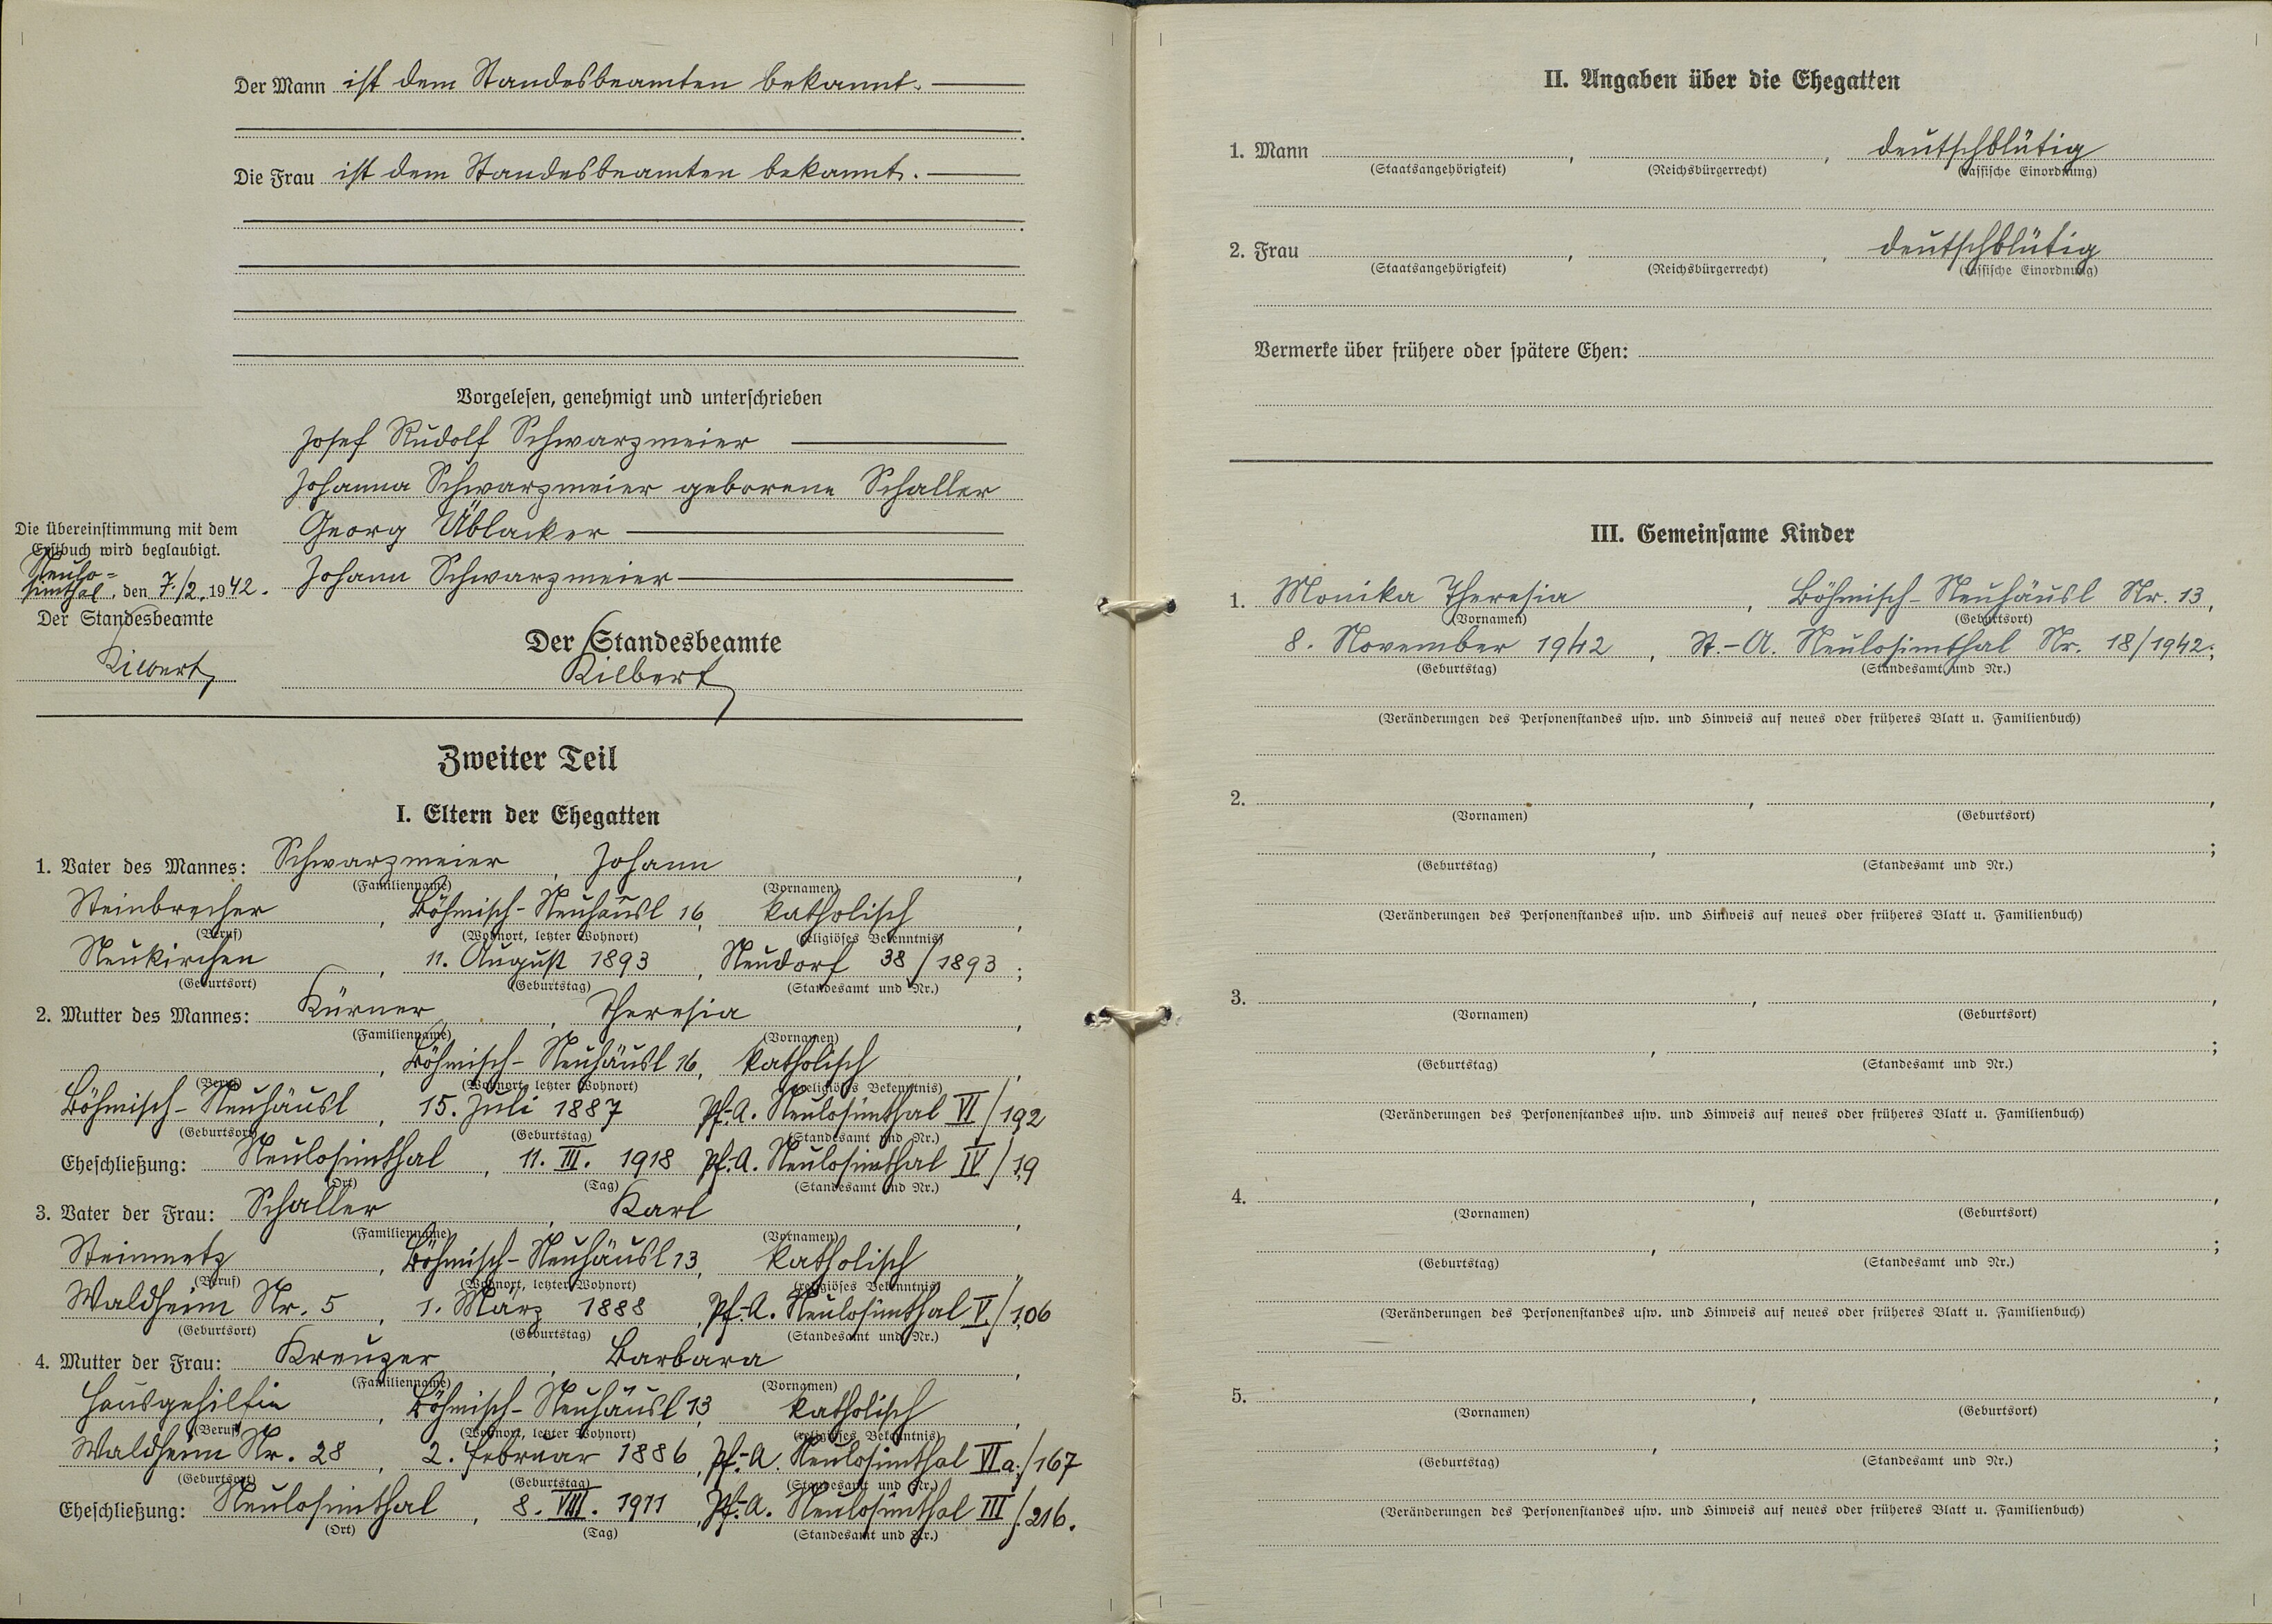 Der Mann ist dem Standesbeamten bekannt.
Die Frau ist dem Standesbeamten bekannt.
Vorgelesen, genehmigt und unterschrieben
Josef Rudolf Schwarzmeier
Johanna Schwarzmeier geborene Schaller
Georg Üblacker
Johann Schwarzmeier
Die Übereinstimmung mit dem
Erstbuch wird beglaubigt.
Neulo=
simthal, den 7./2. 1942.
Der Standesbeamte
Kilbert
Der Standesbeamte
Kilbert
Zweiter Teil
I. Eltern der Ehegatten
1. Vater des Mannes: Schwarzmeier, Johann,
(Familienname) (Vornamen)
Steinbrecher, Böhmisch-Neuhäusl 16, katholisch,
(Beruf) (Wohnort, letzter Wohnort) (religiöses Bekenntnis)
Neukirchen, 11. August 1893, Neudorf 38/1893;
(Geburtsort) (Geburtstag) (Standesamt und Nr.)
2. Mutter des Mannes: Kürner, Theresia,
(Familienname) (Vornamen)
, Böhmisch-Neuhäusl 16, katholisch,
(Beruf) (Wohnort, letzter Wohnort) (religiöses Bekenntnis)
Böhmisch-Neuhäusl, 15. Juli 1887 Pf.-A. Neulosimthal VI/192
(Geburtsort) (Geburtstag) (Standesamt und Nr.)
Eheschließung: Neulosimthal, 11. III. 1918 Pf.A. Neulosimthal IV/19
(Ort) (Tag) (Standesamt und Nr.)
3. Vater der Frau: Schaller, Karl,
(Familienname) (Vornamen)
Steinmetz, Böhmisch-Neuhäusl 13, katholisch,
(Beruf) (Wohnort, letzter Wohnort) (religiöses Bekenntnis)
Waldheim Nr. 5, 1. März 1888, Pf.-A. Neulosimthal V./106
(Geburtsort) (Geburtstag) (Standesamt und Nr.)
4. Mutter der Frau: Kreuzer, Barbara,
(Familienname) (Vornamen)
Hausgehilfin, Böhmisch-Neuhäusl 13, katholisch,
(Beruf) (Wohnort, letzter Wohnort) (religiöses Bekenntnis)
Waldheim Nr. 28, 2. Februar 1886, Pf.-A. Neulosimthal VIa./167
(Geburtsort) (Geburtstag) (Standesamt und Nr.)
Eheschließung: Neulosimthal, 8. VIII. 1911, Pf.-A. Neulosimthal III/.216.
(Ort) (Tag) (Standesamt und Nr.)
II. Angaben über die Ehegatten
1. Mann , , deutschblütig
(Staatsangehörigkeit) (Reichsbürgerrecht) (rassische Einordnung)
2. Frau , , deutschblütig
(Staatsangehörigkeit) (Reichsbürgerrecht) (rassische Einordnung)
Vermerke über frühere oder spätere Ehen:
III. Gemeinsame Kinder
1. Monika Theresia, Böhmisch-Neuhäusl Nr. 13,
(Vornamen) (Geburtsort)
8. November 1942, St.-A. Neulosimthal Nr. 18/1942;
(Geburtstag) (Standesamt und Nr.)
(Veränderungen des Personenstandes usw. und Hinweis auf neues oder früheres Blatt u. Familienbuch)
2. , ,
(Vornamen) (Geburtsort)
, ;
(Geburtstag) (Standesamt und Nr.)
(Veränderungen des Personenstandes usw. und Hinweis auf neues oder früheres Blatt u. Familienbuch)
3. , ,
(Vornamen) (Geburtsort)
, ;
(Geburtstag) (Standesamt und Nr.)
(Veränderungen des Personenstandes usw. und Hinweis auf neues oder früheres Blatt u. Familienbuch)
4. , ,
(Vornamen) (Geburtsort)
, ;
(Geburtstag) (Standesamt und Nr.)
(Veränderungen des Personenstandes usw. und Hinweis auf neues oder früheres Blatt u. Familienbuch)
5. , ,
(Vornamen) (Geburtsort)
, ;
(Geburtstag) (Standesamt und Nr.)
(Veränderungen des Personenstandes usw. und Hinweis auf neues oder früheres Blatt u. Familienbuch)